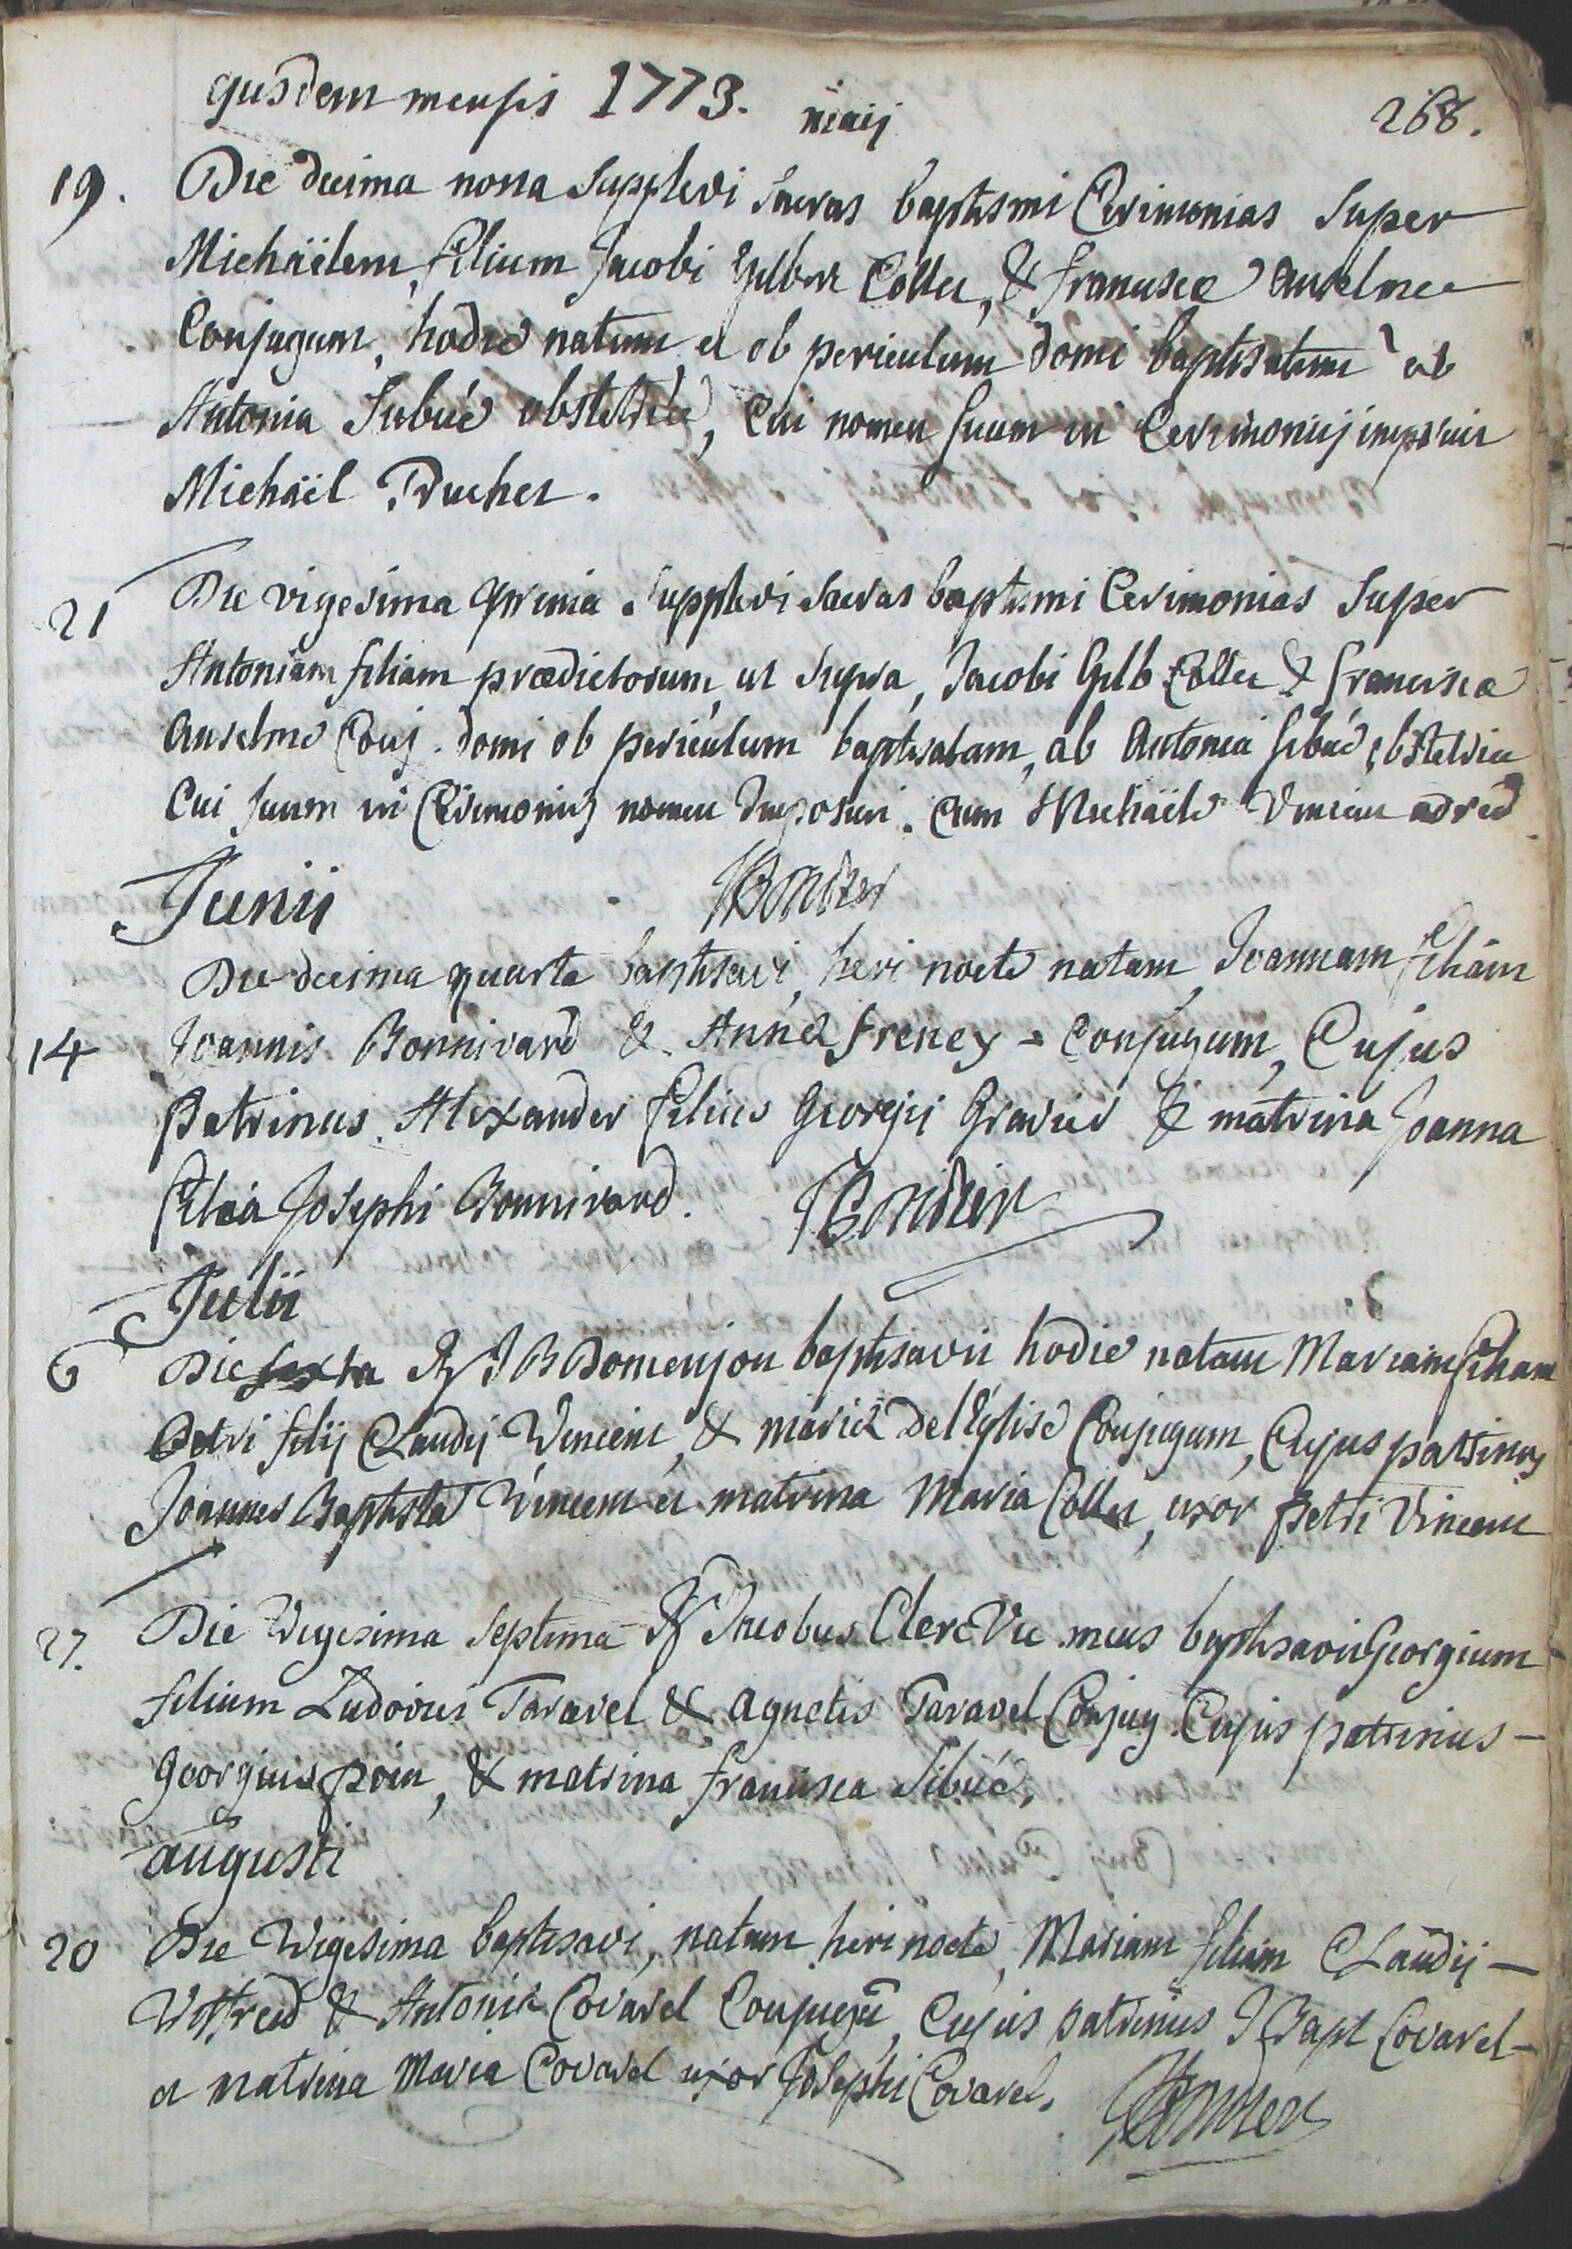 ejusdem mensis 1773. maij 268.
19. Die decima nona supplevi sacras baptismi Cerimonias super
Michaëlem, filium Jacobi Gilbert Collet, & franciscæ anselme
Conjugum, hodie natum et ob periculum domi baptisatum ab
Antonia Sibué obstetrice, Cui nomen suum in Cerimoniis imposuit
Michaël Truchet.
21 Die vigesima prima supplevi sacras baptismi Cerimonias super
Antoniam filiam prædictorum, ut supra, Jacobi Gilb Collet & franciscæ
anselme Conj. domi ob periculum baptisatam, ab Antonia sibué obstetrice
Cui suum in Cerimoniis nomen Imposui. Cum Michaële Vincent
Junii
Die decima quarta baptisavi, heri nocte natam, Joannam filiam
14 Joannis Bonnivard & Annæ freney = Conjugum, Cujus
Patrinus Alexander filius Georgii Gravier & matrina Joanna
filia Josephi Bonnivard.
Julii
6 Die sexta R J B Domenjon baptisavit hodie natam Mariam filiam
Petri filij Claudij Vincent, & mariæ del'Eglise Conjugum, Cujus patrinus
Joannes Baptista Vincent et matrina Maria Collet, uxor petri Vincent
27. Die Vigesima septima R Jacobus Clerc Vic meus baptisavit Georgium
filium Ludovici Taravel & agnetis Taravel Conjug. Cujus patrinus -
Georgius poin, & matrina francisca Sibué,
augusti
20 Die Vigesima baptisavi, natam heri nocte, Mariam filiam Claudij -
Vffred & Antoniæ Covarel Conjugū, Cujus patrinus J Bapt Covarel -
et matrina Maria Covarel uxor Josephi Covarel.